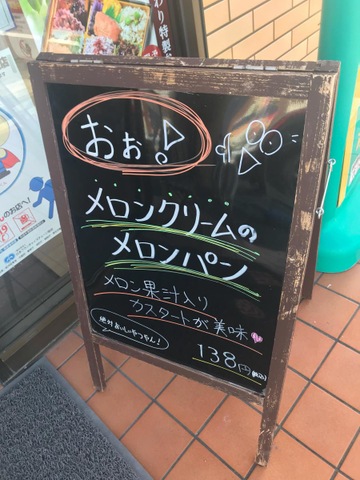 おぉ!
メロンクリームの
メロンパン
メロン果汁入り
カスタードが美味
絶対おいしいやつやん!
138円(税込)